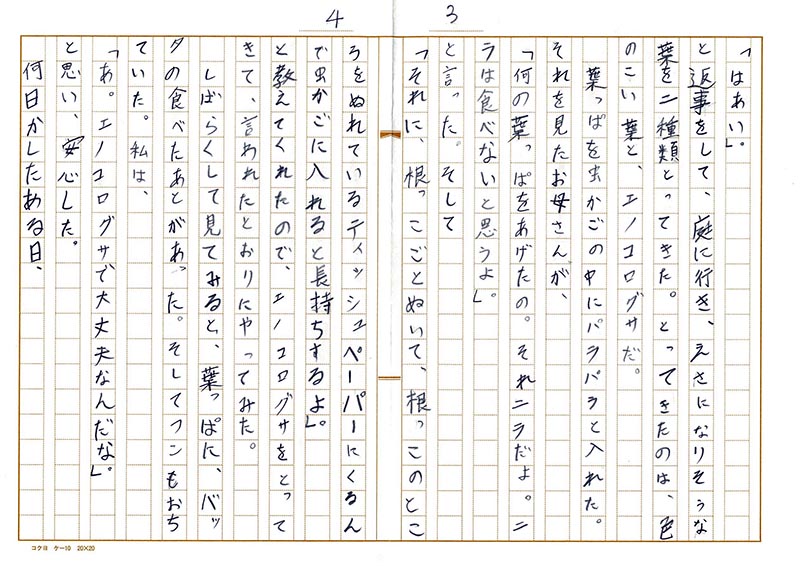 3
「はあい」。
と返事をして、庭に行き、えさになりそうな
葉を二種類とってきた。とってきたのは、色
のこい葉と、エノコログサだ。
葉っぱを虫かごの中にパラパラと入れた。
それを見たお母さんが、
「何の葉っぱをあげたの。それニラだよ。ニ
ラは食べないと思うよ」。
と言った。そして
「それに、根っこごとぬいて、根っこのとこ
4
ろをぬれているティッシュペーパーにくるん
で虫かごに入れると長持ちするよ」。
と教えてくれたので、エノコログサをとって
きて、言われたとおりにやってみた。
しばらくして見てみると、葉っぱに、バッ
タの食べたあとがあった。そしてフンもおち
ていた。私は、
「あ。エノコログサで大丈夫なんだな」。
と思い、安心した。
何日かしたある日、
コクヨ ケー10 20×20